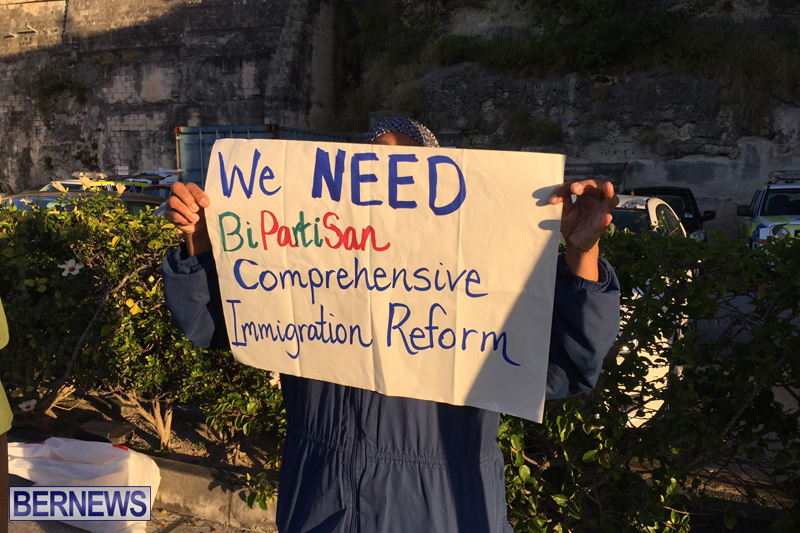 We NEED
BiPartiSan
Comprehensive
Immigration Reform
BERNEWS